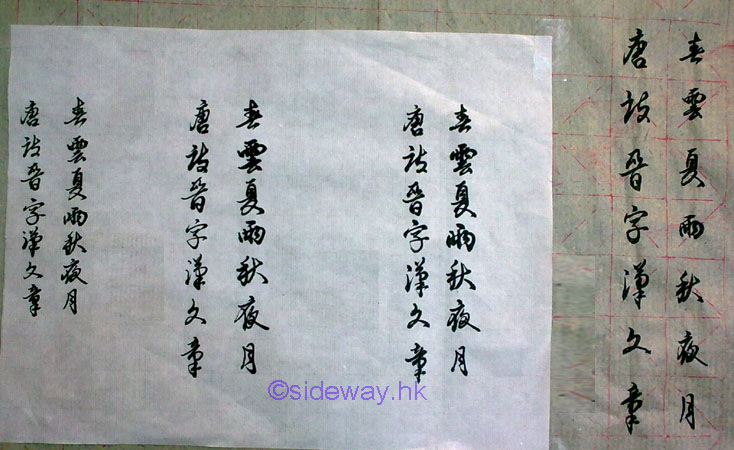 春雲夏雨秋夜月
唐詩晉字漢文章
春雲夏雨秋夜月
唐詩晉字漢文章
春雲夏雨秋夜月
唐詩晉字漢文章
春雲夏雨秋夜月
唐詩晉字漢文章
©sideway.hk